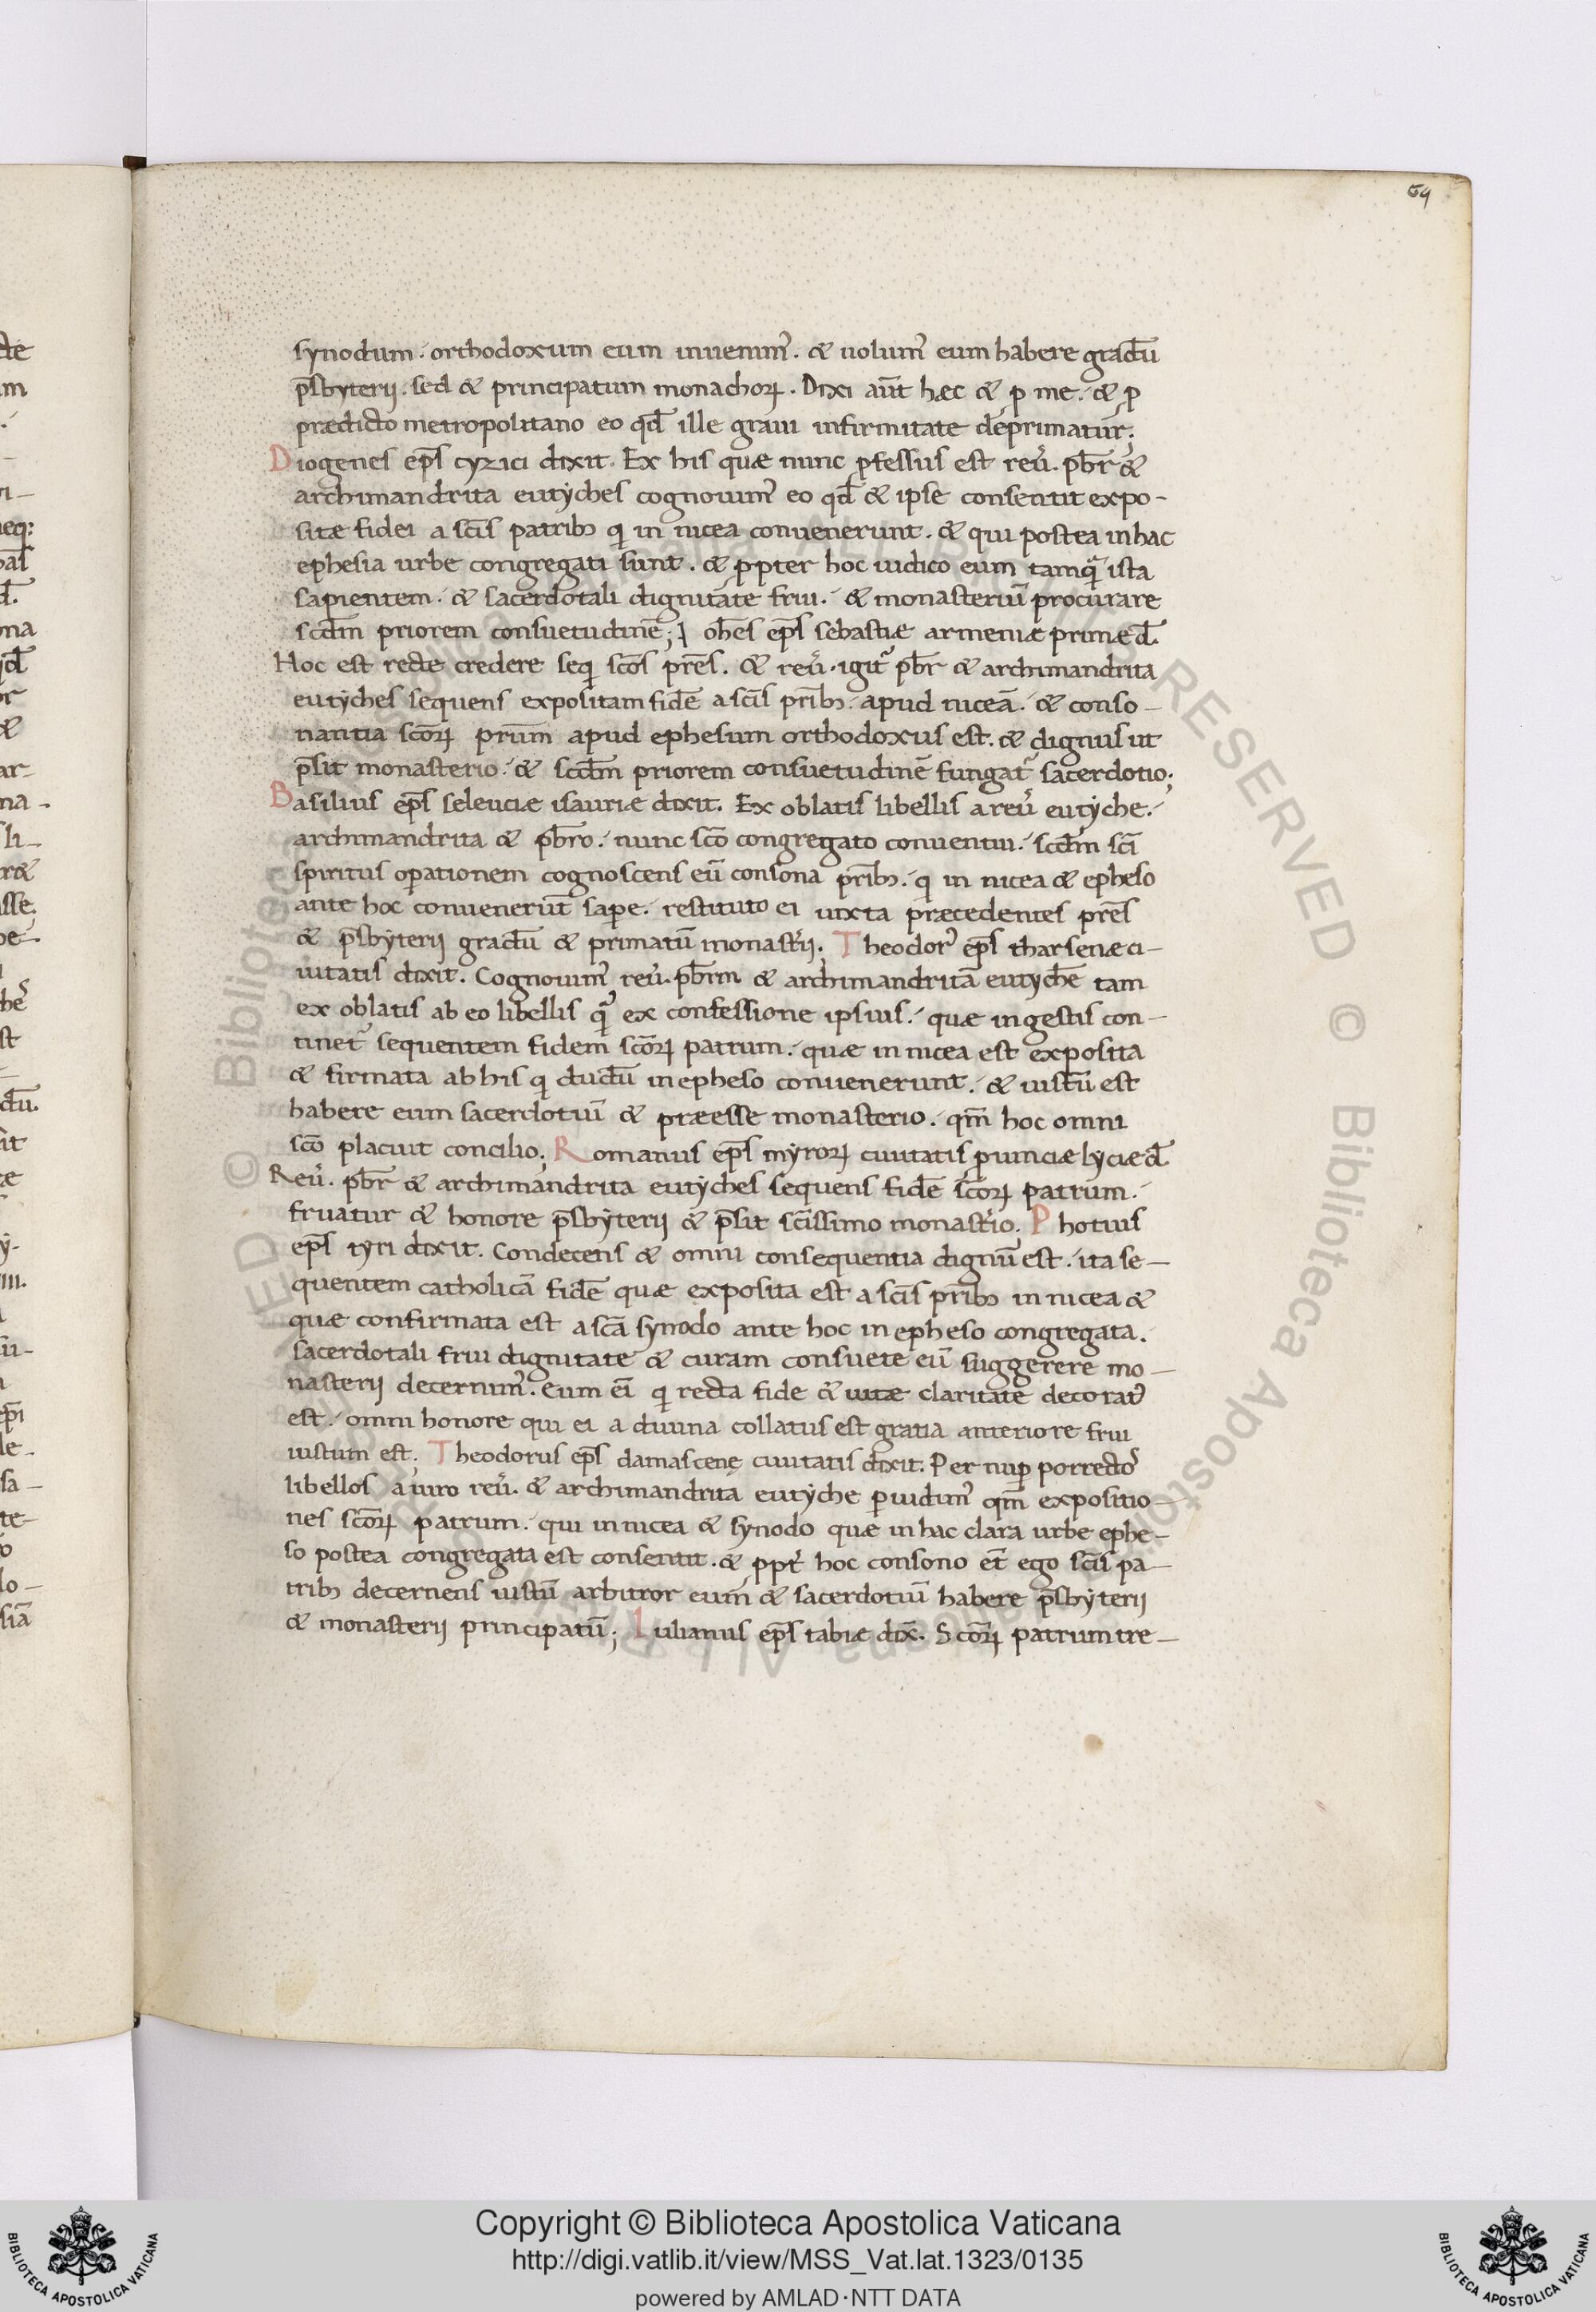 64
synodum. orthodoxum eum inuenim᾽. & uolum᾽ eum habere gradū
p̄sbyterii. sed & principatum monachoꝝ. Dixi aūt hæc & ꝑ me. & ꝑ
prædicto metropolitano eo qđ ille graui infirmitate deprimatur;
Diogenes ep̄s cyzici dixit. Ex his quæ nunc ꝓfessus est reu᾽. pb̄r &
archimandrita eutyches cognouim᾽ eo qđ & ipse consentit expo-
sitæ fidei a scīs patrib; qi in nicea conuenerunt. & qui postea in hac
ephesia urbe congregati sunt. & ꝓpter hoc iudico eum tamqͣ ista
sapientem. & sacerdotali dignitate frui. & monasteriū procurare
scđm priorem consuetudinē; Ioħes ep̄s sebastiæ armeniæ primæ đ.
Hoc est recte credere seqi scōs pr̄es. & reu᾽. igit᾽ pb̄r & archimandrita
eutyches sequens expositam fidē a scīs pr̄ib;. apud niceā. & conso-
nantia scōꝝ pr̄um apud ephesum orthodoxus est. & dignus ut
p̄sit monasterio. & scđm priorem consuetudinē fungat᾽ sacerdotio;
Basilius ep̄s seleuciæ isauriæ dixit. Ex oblatis libellis a reu᾽ eutyche.
archimandrita & pb̄ro. nunc scō congregato conuentui. scđm scī
spiritus oꝑationem cognoscens eū consona pr̄ib;. qi in nicea & epheso
ante hoc conuenerūt sape. restituto ei iuxta præcedentes pr̄es
& p̄sbyterii gradū & primatū monast᾽rii; Theodor᾽ ep̄s tharsenæ ci-
uitatis dixit. Cognouim᾽ reu᾽. pb̄rm & archimandritā eutychē tam
ex oblatis ab eo libellis qͣ ex confessione ipsius. quæ in gestis con-
tinet᾽ sequentem fidem scōꝝ patrum. quæ in nicea est exposita
& firmata ab his qi dudū in epheso conuenerunt. & iustū est
habere eum sacerdotiū & præesse monasterio. qm̄ hoc omni
scō placuit concilio; Romanus ep̄s myroꝝ ciuitatis ꝓuinciæ lyciæ đ.
Reu᾽. pb̄r & archimandrita eutyches sequens fidē scōꝝ patrum.
fruatur & honore p̄sbyterii & p̄sit scīssimo monast᾽rio; Photius
ep̄s tyri dixit. Condecens & omni consequentia dignū est. ita se-
quentem catholicā fidē quæ exposita est a scīs pr̄ib; in nicea &
quæ confirmata est a scā synodo ante hoc in epheso congregata.
sacerdotali frui dignitate & curam consuete eū suggerere mo-
nasterii decernim᾽. eum eī qi recta fide & uitæ claritate decorat᾽
est. omni honore qui ei a diuina collatus est gratia anteriore frui
iustum est. Theodorus ep̄s damascenę ciuitatis dixit. Per nuꝑ porrecto᾽s
libellos a uiro reu᾽. & archimandrita eutyche ꝑuidim᾽ qm̄ expositio-
nes scōꝝ patrum. qui in nicea & synodo quæ in hac clara urbe ephe-
so postea congregata est consentit. & ꝓpt᾽ hoc consono et̄ ego scīs pa-
trib; decernens iustū arbitror eum & sacerdotiū habere p̄sbyterii
& monasterii principatū; Iulianus ep̄s tabiæ dix̄. Scōꝝ patrum tre-
Copyright © Biblioteca Apostolica Vaticana
http://digi.vatlib.it/view/MSS_Vat.lat.1323/0135
powered by AMLAD·NTT DATA
BIBLIOTECA APOSTOLICA VATICANA
BIBLIOTECA APOSTOLICA VATICANA